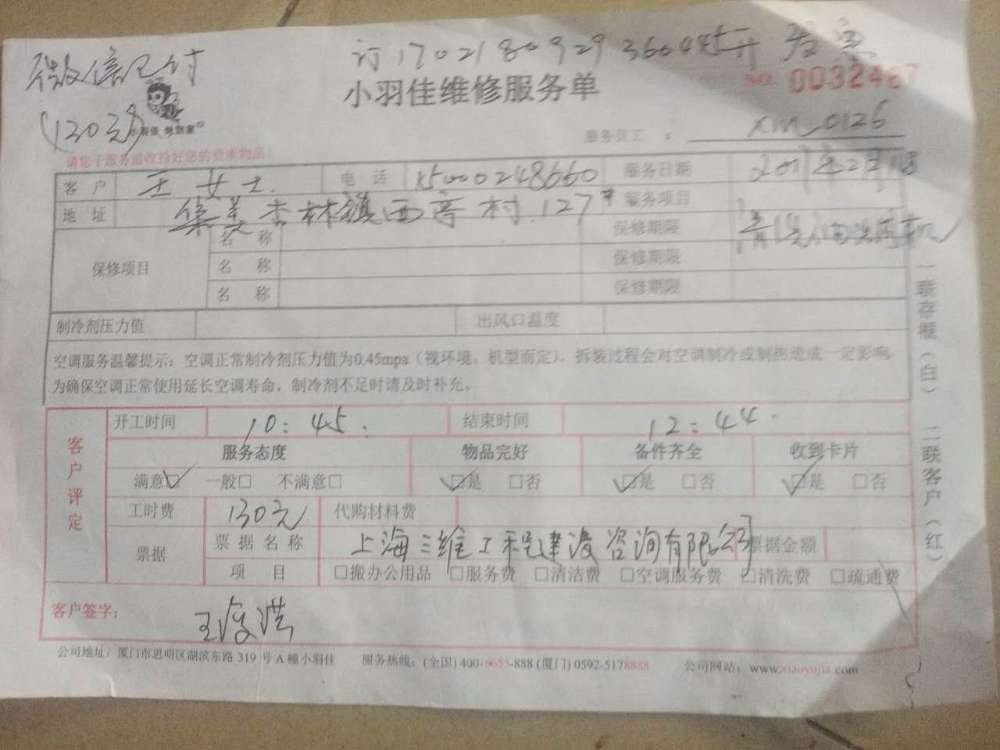 微信已付
订1702180929360445开发票
(130元)
小羽佳维修服务单
NO. 0032467
服务员工： xm_0126
请您于服务前收拾好您的贵重物品
客户 王女士. 电话 15000248660 服务日期 2017年2月18
地址 集美杏林镇西亭村127# 服务项目
保修项目 名称 保修期限
名称 保修期限
名称 保修期限
制冷剂压力值 出风口温度
空调服务温馨提示：空调正常制冷剂压力值为0.45mpa（视环境、机型而定），拆装过程会对空调制冷或制热造成一定影响，
为确保空调正常使用延长空调寿命，制冷剂不足时请及时补充。
客户评定
开工时间 10:45. 结束时间 12:44.
服务态度 物品完好 备件齐全 收到卡片
满意☑ 一般□ 不满意□ ☑是 □否 ☑是 □否 ☑是 □否
工时费 130元 代购材料费
票据 票据名称 上海三维工程建设咨询有限公司 票据金额
项目 □搬办公用品 □服务费 □清洁费 □空调服务费 □清洗费 □疏通费
客户签字：
公司地址：厦门市思明区湖滨东路 319 号 A 幢小羽佳 服务热线：(全国) 400-6655-888 (厦门) 0592-5178888 公司网站：www.xiaoyujia.com
一联存根（白） 二联客户（红）